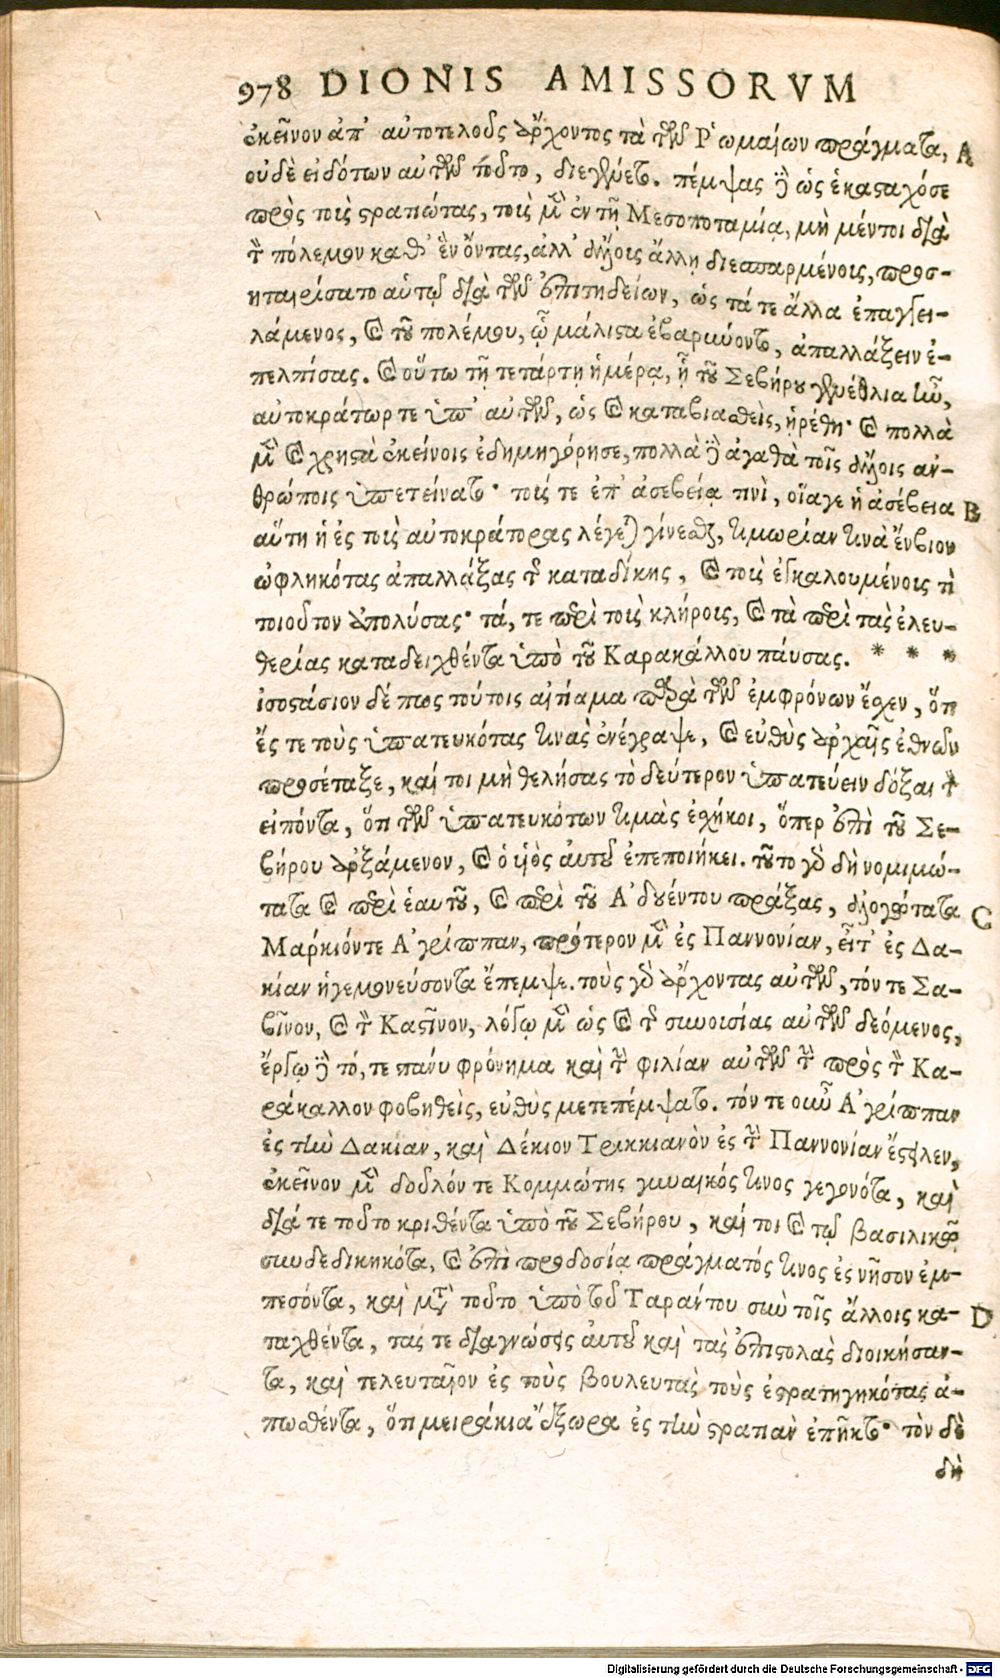 978 DIONIS AMISSORVM
ἐκεῖνον ἀπ' αὐτοτελοῦς ἄρχοντος τὰ τῶν Ῥωμαίων πράγματα, A
οὐδὲ εἰδότων αὐτῶν τοῦτο, διεγένετο. πέμψας δὲ ὡς ἑκασταχόσε
πρὸς τοὺς στρατιώτας, τοὺς μὲν ἐν τῇ Μεσοποταμίᾳ, μὴ μέντοι διὰ
τὸν πόλεμον καθ' ἓν ὄντας, ἀλλ' ἄλλοις ἄλλῃ διεσπαρμένοις, προσ-
ηταιρίσατο αὑτῷ διὰ τῶν ἐπιτηδείων, ὡς τά τε ἄλλα ἐπαγγει-
λάμενος, καὶ τοῦ πολέμου, ᾧ μάλιστα ἐβαρύνοντο, ἀπαλλάξειν ἐ-
πελπίσας. καὶ οὕτω τῇ τετάρτῃ ἡμέρᾳ, ᾗ τοῦ Σεβήρου γενέθλια ἦν,
αὐτοκράτωρ τε ὑπ' αὐτῶν, ὡς καὶ καταβιασθεὶς, ᾑρέθη· καὶ πολλὰ
μὲν καὶ χρηστὰ ἐκείνοις ἐδημηγόρησε, πολλὰ δὲ ἀγαθὰ τοῖς ἄλλοις ἀν-
θρώποις ὑπετείνατο· τούς τε ἐπ' ἀσεβείᾳ τινὶ, οἵαγε ἡ ἀσέβεια B
αὕτη ἡ ἐς τοὺς αὐτοκράτορας λέγεται γίνεσθαι, τιμωρίαν τινὰ ἔνβιον
ὠφληκότας ἀπαλλάξας τῆς καταδίκης, καὶ τοὺς ἐγκαλουμένοις τὶ
τοιοῦτον ἀπολύσας· τά, τε περὶ τοὺς κλήροις, καὶ τὰ περὶ τὰς ἐλευ-
θερίας καταδειχθέντα ὑπὸ τοῦ Καρακάλλου παύσας. * * *
ἰσοστάσιον δέ πως τούτοις αἰτίαμα παρὰ τῶν ἐμφρόνων ἔσχεν, ὅτι
ἔς τε τοὺς ὑπατευκότας τινὰς ἐνέγραψε, καὶ εὐθὺς ἀρχαῖς ἐθνῶν
προσέταξε, καί τοι μὴ θελήσας τὸ δεύτερον ὑπατεύειν δόξαι τὸν
εἰπόντα, ὅτι τῶν ὑπατευκότων τιμὰς ἐχήκοι, ὅπερ ἐπὶ τοῦ Σε-
βήρου ἀρξάμενον, καὶ ὁ υἱὸς αὐτοῦ ἐπεποιήκει. τοῦτο γὰρ δὴ νομιμώ-
τατα καὶ περὶ ἑαυτοῦ, καὶ περὶ τοῦ Ἀδουέντου πράξας, ἀλογώτατα C
Μαρκιόντε Ἀγρίππαν, πρότερον μὲν ἐς Παννονίαν, εἶτ' ἐς Δα-
κίαν ἡγεμονεύσοντα ἔπεμψε. τοὺς γὰρ ἄρχοντας αὐτῶν, τόν τε Σα-
βῖνον, καὶ τὸν Καστῖνον, λόγῳ μὲν ὡς καὶ τῆς συνουσίας αὐτῶν δεόμενος,
ἔργῳ δὲ τό, τε πάνυ φρόνημα καὶ τὴν φιλίαν αὐτῶν τὴν πρὸς τὸν Κα-
ράκαλλον φοβηθεὶς, εὐθὺς μετεπέμψατο. τόν τε οὖν Ἀγρίππαν
ἐς τὴν Δακίαν, καὶ Δέκιον Τρικκιανὸν ἐς τὴν Παννονίαν ἔστειλεν,
ἐκεῖνον μὲν δοῦλόν τε Κομμώτης γυναικός τινος γεγονότα, καὶ
διά τε τοῦτο κριθέντα ὑπὸ τοῦ Σεβήρου, καί τοι καὶ τῷ βασιλικῷ
συνδεδικηκότα, καὶ ἐπὶ προδοσίᾳ πράγματός τινος ἐς νῆσον ἐμ-
πεσόντα, καὶ μετὰ τοῦτο ὑπὸ τοῦ Ταραύτου σὺν τοῖς ἄλλοις κα- D
ταχθέντα, τάς τε διαγνώσεις αὐτοῦ καὶ τὰς ἐπιστολὰς διοικήσαν-
τα, καὶ τελευταῖον ἐς τοὺς βουλευτὰς τοὺς ἐστρατηγηκότας ἀ-
πωσθέντα, ὅτι μειράκια ἔξωρα ἐς τὴν στρατιὰν ἐπῆκτο· τὸν δὲ
δὴ
Digitalisierung gefördert durch die Deutsche Forschungsgemeinschaft - DFG